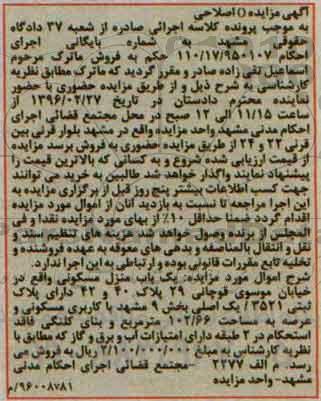 آگهی مزایده () اصلاحی
به موجب پرونده کلاسه اجرائی صادره از شعبه ۳۷ دادگاه
حقوقی مشهد به شماره بایگانی اجرای
احکام ۱۱۰/۱۷/۹۵۰۱۰۷ حکم به فروش ماترک مرحوم
اسماعیل تقی زاده صادر و مقرر گردید که ماترک مطابق نظریه
کارشناسی به شرح ذیل و از طریق مزایده حضوری با حضور
نماینده محترم دادستان در تاریخ ۱۳۹۶/۰۲/۲۷ از
ساعت ۱۱/۱۵ الی ۱۲ صبح در محل مجتمع قضائی اجرای
احکام مدنی مشهد واحد مزایده واقع در مشهد بلوار قرنی بین
قرنی ۲۲ و ۲۴ از طریق مزایده حضوری به فروش برسد مزایده
از قیمت ارزیابی شده شروع و به کسانی که بالاترین قیمت را
پیشنهاد نمایند واگذار خواهد شد طالبین به خرید می توانند
جهت کسب اطلاعات بیشتر پنج روز قبل از برگزاری مزایده به
این اجرا مراجعه تا نسبت به بازدید آنان از اموال مورد مزایده
اقدام گردد ضمنا حداقل ۱۰٪ از بهای مورد مزایده نقدا و فی
المجلس از برنده وصول خواهد شد هزینه های تنظیم سند و
نقل و انتقال بالمناصفه و بدهی های معوقه به عهده فروشنده و
تخلیه تابع مقررات قانونی بوده و ارتباطی به این اجرا ندارد.
شرح اموال مورد مزایده: یک باب منزل مسکونی واقع در
خیابان موسوی قوچانی ۲۹ پلاک ۴۰ و ۴۲ دارای پلاک
ثبتی ۳۵۲۱ / یک اصلی بخش ۹ مشهد با کاربری مسکونی و
عرصه به مساحت ۱۰۲/۶۶ مترمربع و بنای کلنگی فاقد
استحکام در ۲ طبقه دارای امتیازات آب و برق و گاز که مطابق با
نظریه کارشناس به مبلغ ۲/۱۰۰/۰۰۰/۰۰۰ ریال به فروش می
رسد. م الف ۲۲۷۷ -مجتمع قضائی اجرای احکام مدنی
مشهد- واحد مزایده
۹۶۰۰۸۷۸۱/م